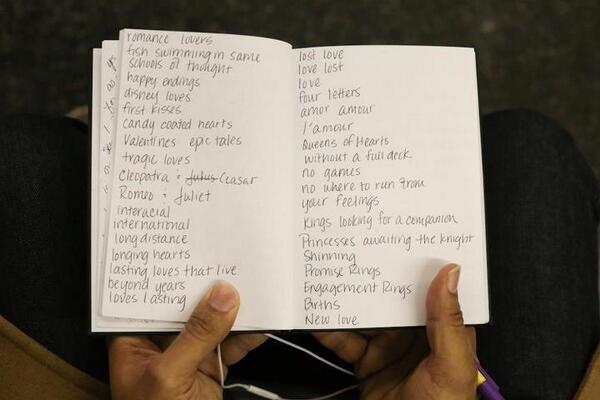 romance lovers
fish swimming in same
schools of thought
happy endings
disney loves
first kisses
candy coated hearts
Valentines epic tales
tragic loves
Cleopatra & Julus Ceasar
Romeo & Juliet
interacial
international
long distance
longing hearts
lasting loves that live
beyond years
loves lasting
lost love
love lost
love
four letters
amor amour
l'amour
Queens of Hearts
without a full deck
no games
no where to run from
your feelings
Kings looking for a companion
Princesses awaiting the knight
Shinning
Promise Rings
Engagement Rings
Births
New love